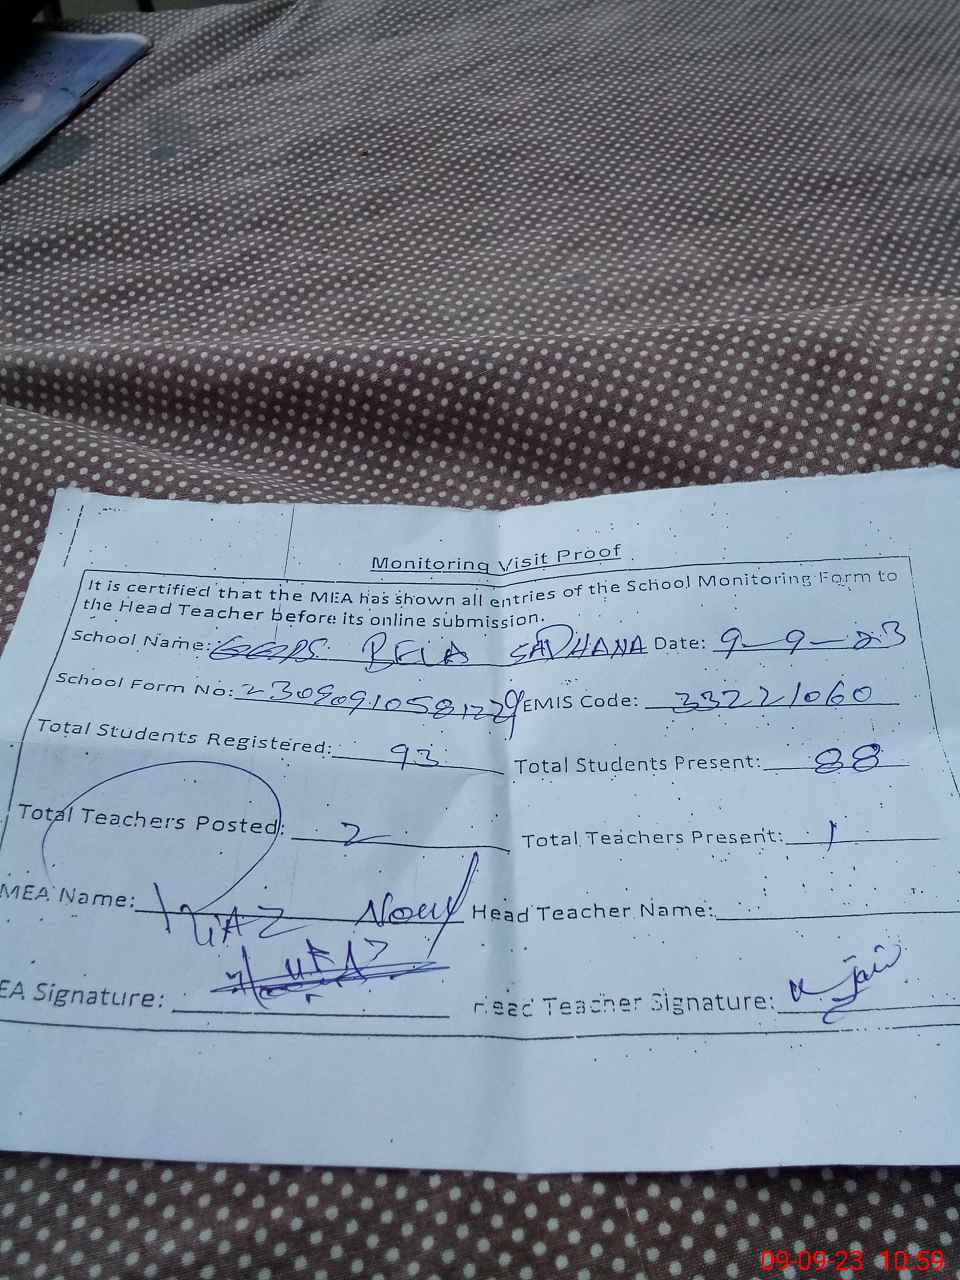 Monitoring Visit Proof
It is certified that the MEA has shown all entries of the School Monitoring Form to
the Head Teacher before its online submission.
School Name: GGPS BELA SADHANA Date: 9-9-23
School Form No: EMIS Code: 33221060
Total Students Registered: 93 Total Students Present: 88
Total Teachers Posted: 2 Total Teachers Present: 1
MEA Name: Head Teacher Name:
EA Signature: Head Teacher Signature:
09-09-23 10:59